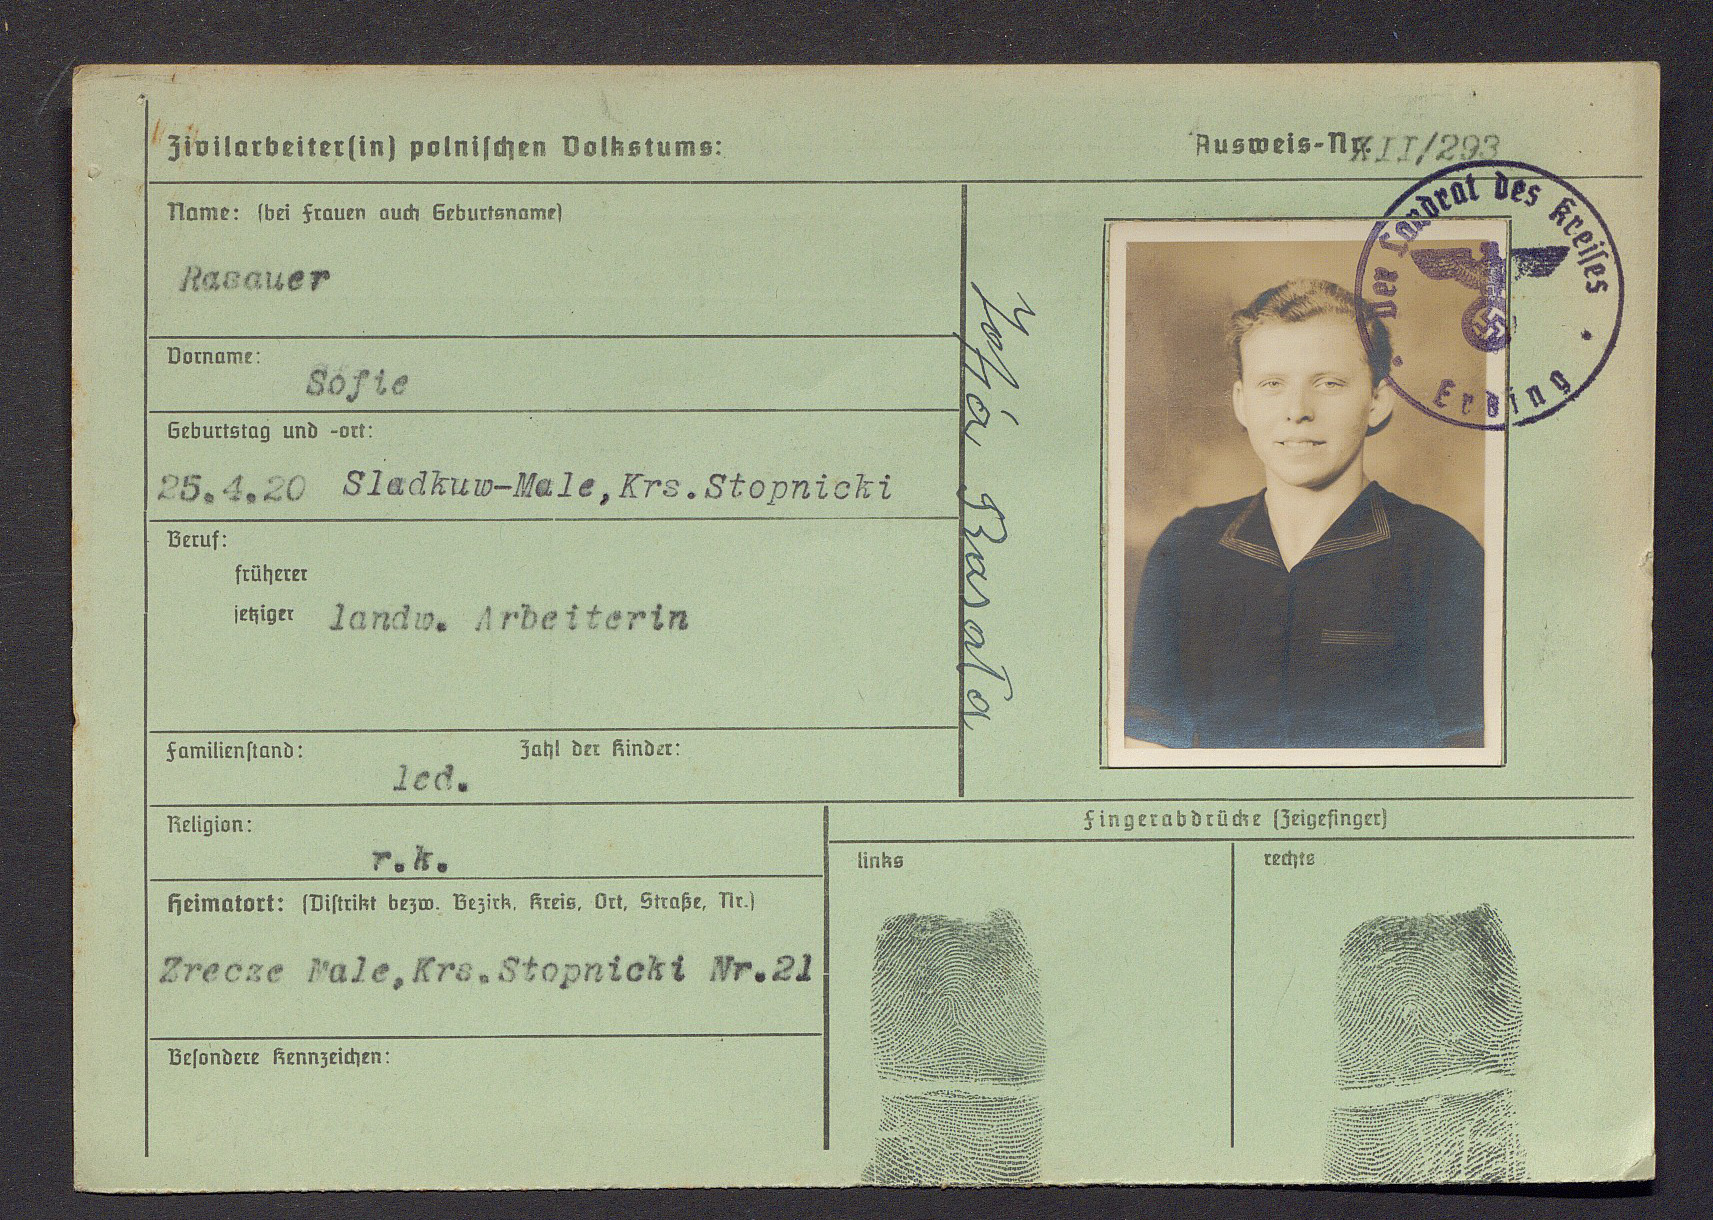 Zivilarbeiter(in) polnischen Volkstums:
Ausweis-Nr. XII/293
Name: (bei Frauen auch Geburtsname)
Rasauer
Vorname:
Sofie
Geburtstag und -ort:
25.4.20 Sladkuw-Male, Krs.Stopnicki
Beruf:
früherer
jetziger landw. Arbeiterin
Familienstand: Zahl der Kinder:
led.
Religion:
r.k.
Heimatort: (Distrikt bezw. Bezirk, Kreis, Ort, Straße, Nr.)
Zrecze Male,Krs.Stopnicki Nr.21
Besondere Kennzeichen:
Der Landrat des Kreises
Erding
Fingerabdrücke (Zeigefinger)
links
rechts